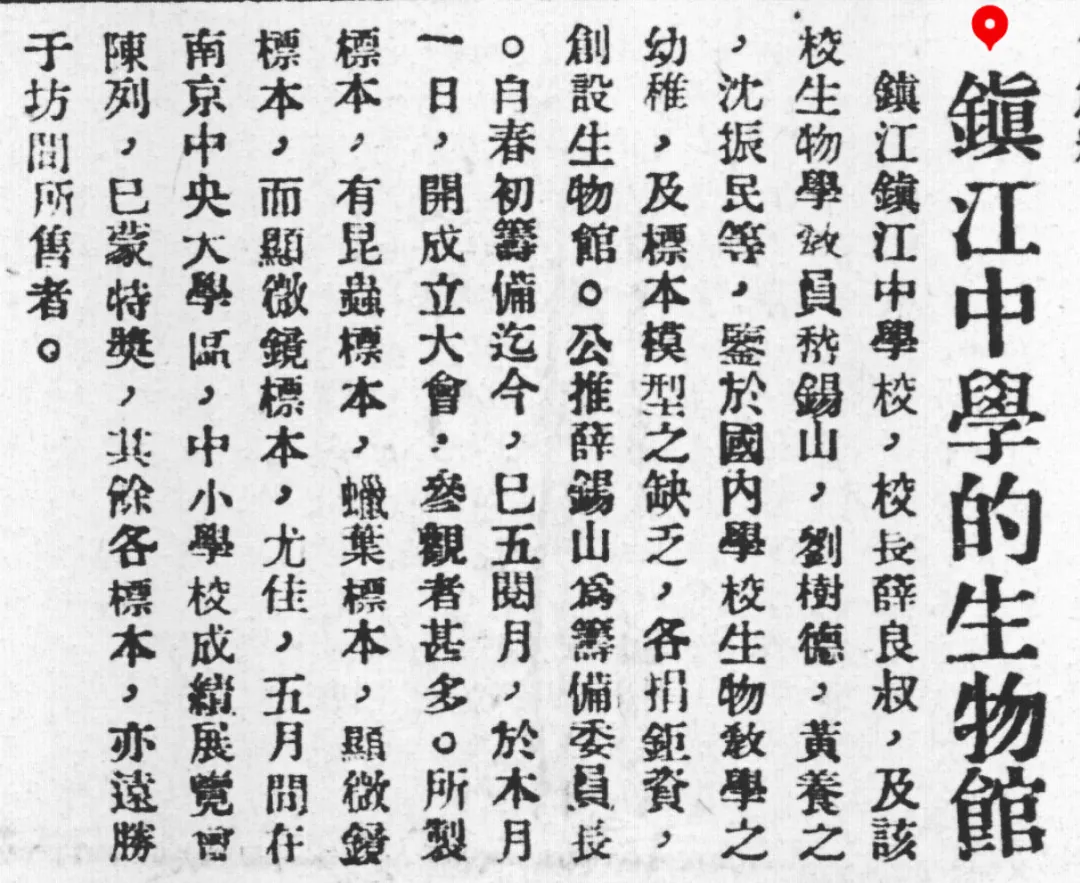 鎭江中學的生物館
鎭江鎭江中學校，校長薛良叔，及該
校生物學敎員嵇錫山，劉樹德，黃養之
，沈振民等，鑒於國內學校生物敎學之
幼稚，及標本模型之缺乏，各捐鉅資，
創設生物館。公推薛錫山爲籌備委員長
。自春初籌備迄今，巳五閱月，於本月
一日，開成立大會，參觀者甚多。所製
標本，有昆蟲標本，蠟葉標本，顯微鏡
標本，而顯微鏡標本，尤佳，五月間在
南京中央大學區，中小學校成績展覽會
陳列，巳蒙特獎，其餘各標本，亦遠勝
于坊間所售者。